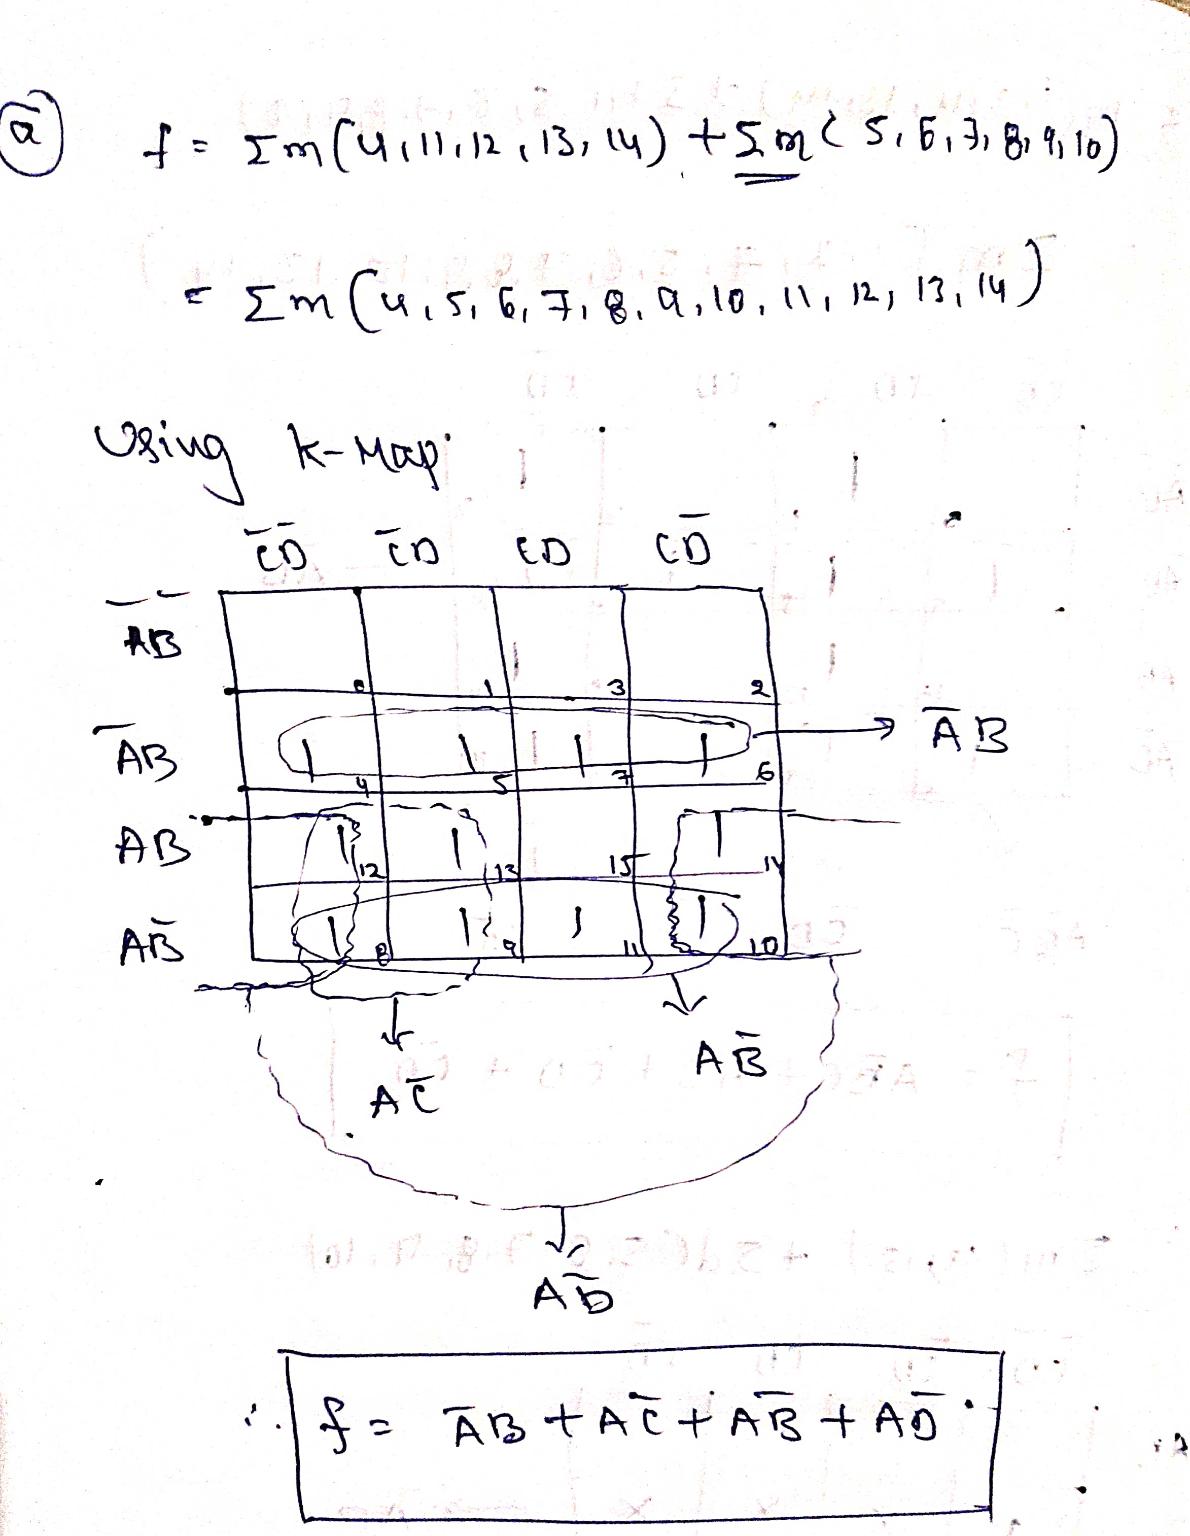 ⓐ f = Σm(4,11,12,13,14) + Σm(5,6,7,8,9,10)
= Σm(4,5,6,7,8,9,10,11,12,13,14)
Using K-Map
C̄D̄ C̄D CD CD̄
ĀB̄ 0 1 3 2
ĀB 1 4 1 5 1 7 1 6 → ĀB
AB 1 12 1 13 15 1 14
AB̄ 1 8 1 9 1 11 1 10
AB̄
AC̄
AD̄
∴ f = ĀB + AC̄ + AB̄ + AD̄